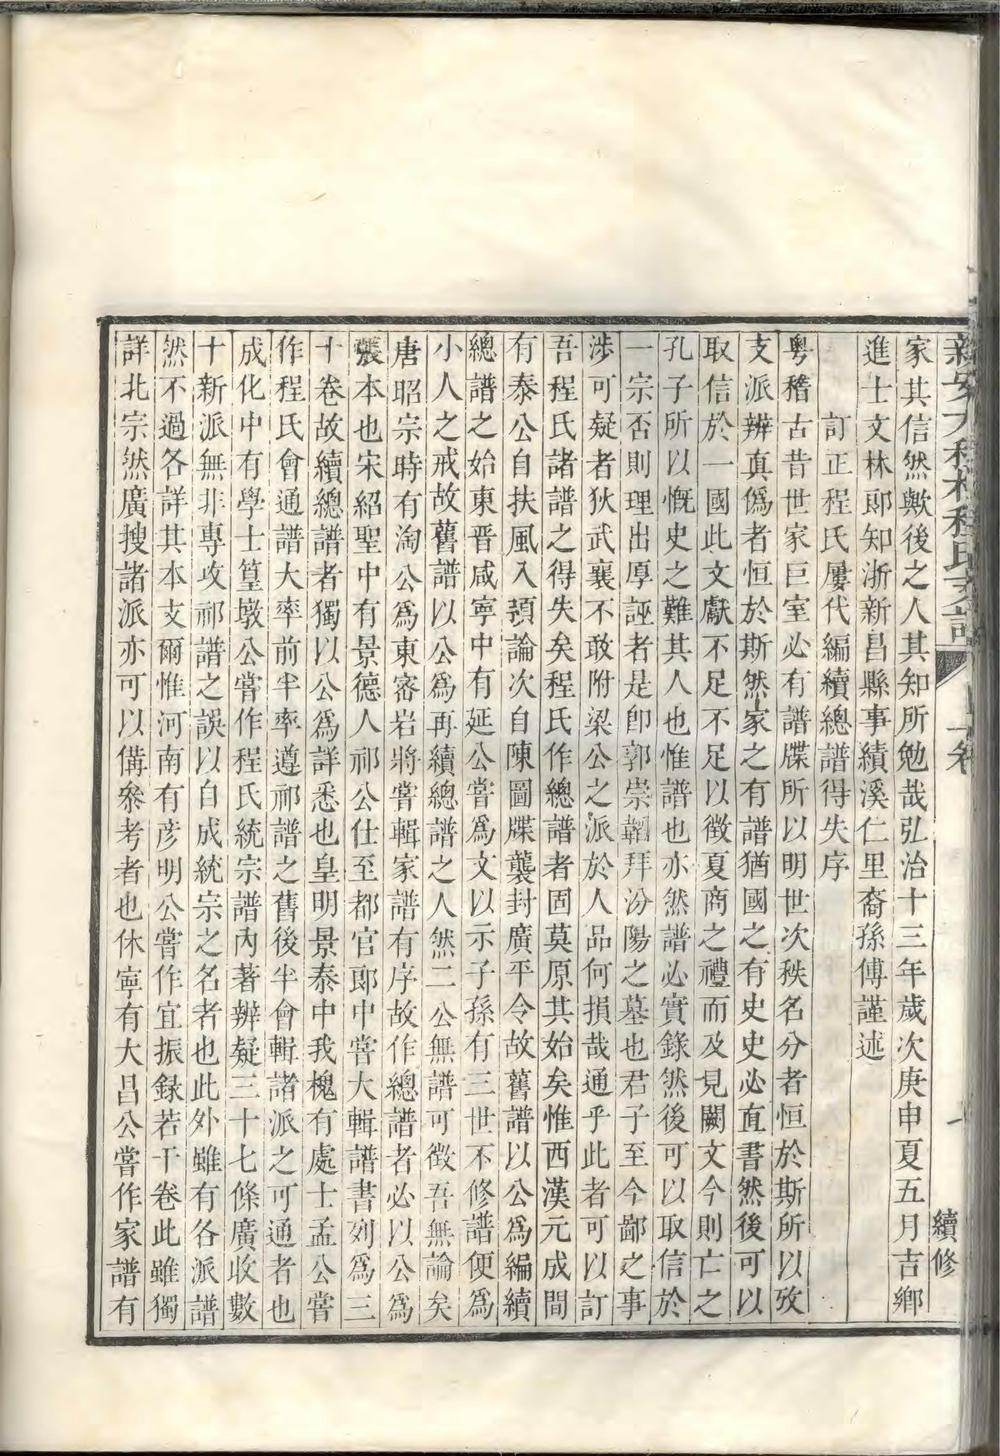 家其信然歟後之人其知所勉哉弘治十三年歲次庚申夏五月吉鄉
進士文林郎知浙新昌縣事績溪仁里裔孫傅謹述
訂正程氏屢代編續總譜得失序
粵稽古昔世家巨室必有譜牒所以明世次秩名分者恒於斯所以攷
支派辨真僞者恒於斯然家之有譜猶國之有史史必直書然後可以
取信於一國此文獻不足不足以徵夏商之禮而及見闕文今則亡之
孔子所以慨史之難其人也惟譜也亦然譜必實錄然後可以取信於
一宗否則理出厚誣者是卽郭崇韜拜汾陽之墓也君子至今鄙之事
涉可疑者狄武襄不敢附梁公之派於人品何損哉通乎此者可以訂
吾程氏諸譜之得失矣程氏作總譜者固莫原其始矣惟西漢元成間
有泰公自扶風入頚論次自陳圖牒襲封廣平令故舊譜以公爲編續
總譜之始東晋咸寧中有延公嘗爲文以示子孫有三世不修譜便爲
小人之戒故舊譜以公爲再續總譜之人然二公無譜可徵吾無論矣
唐昭宗時有淘公爲東密岩將嘗輯家譜有序故作總譜者必以公爲
張本也宋紹聖中有景德人祁公仕至都官郎中嘗大輯譜書列爲三
十卷故續總譜者獨以公爲詳悉也皇明景泰中我槐有處士孟公嘗
作程氏會通譜大率前半率遵祁譜之舊後半會輯諸派之可通者也
成化中有學士篁墩公嘗作程氏統宗譜內著辦疑三十七條廣收數
十新派無非專攻祁譜之誤以自成統宗之名者也此外雖有各派譜
然不過各詳其本支爾惟河南有彦明公嘗作宜振録若干卷此雖獨
詳北宗然廣搜諸派亦可以備叅考者也休寧有大昌公嘗作家譜有
續修